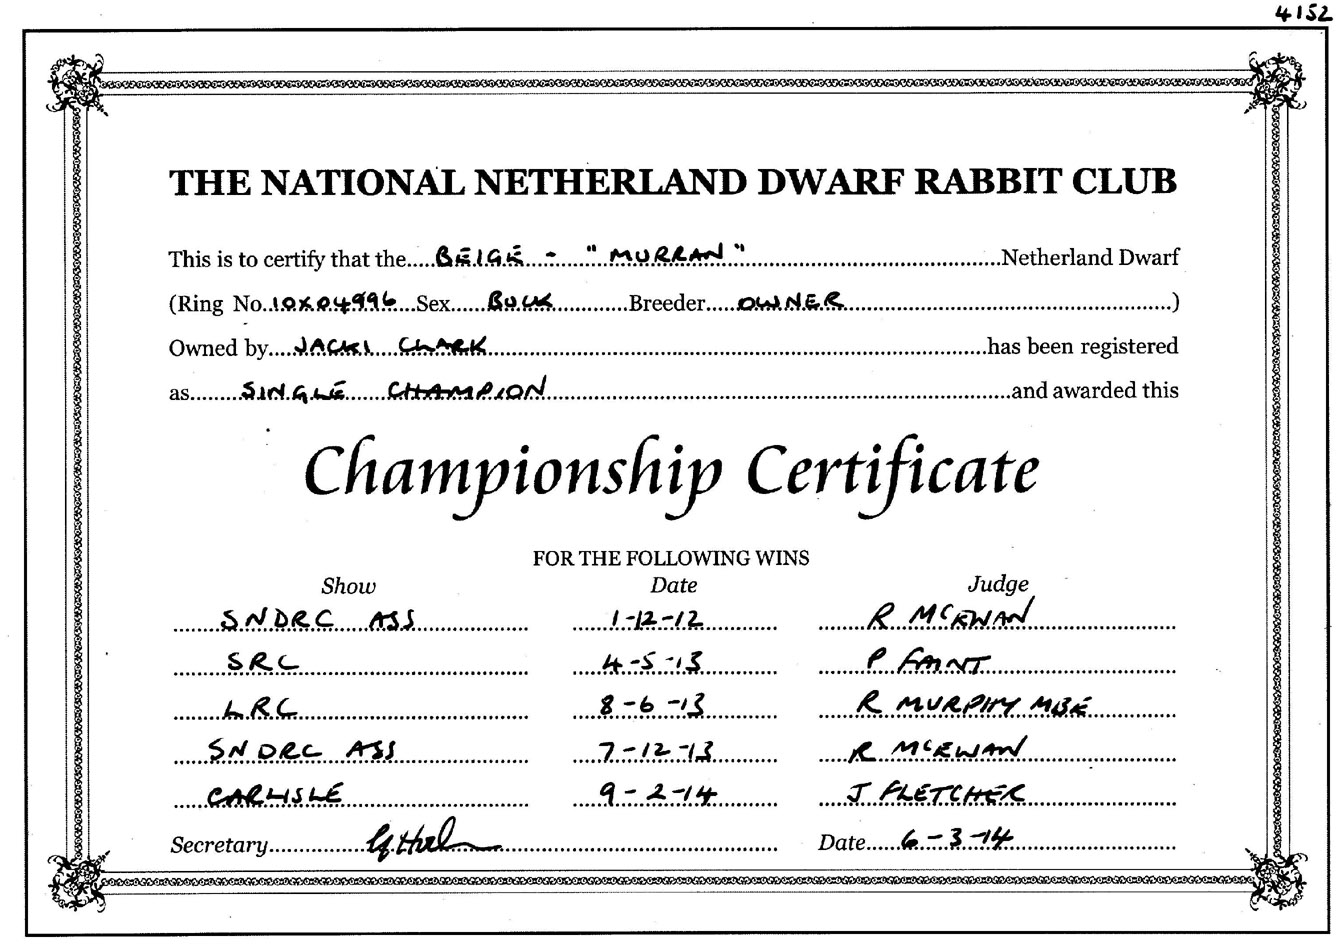 4152
THE NATIONAL NETHERLAND DWARF RABBIT CLUB
This is to certify that the....BEIGE - "MURRAN"....Netherland Dwarf
(Ring No..10X04996...Sex.....BUCK............Breeder.....OWNER....)
Owned by....JACKI CLARK....has been registered
as........SINGLE CHAMPION....and awarded this
Championship Certificate
FOR THE FOLLOWING WINS
Show Date Judge
SNDRC ASS 1-12-12 R MCEWAN
SRC 4-5-13 P FAINT
LRC 8-6-13 R MURPHY MBE
SNDRC ASS 7-12-13 R MCEWAN
CARLISLE 9-2-14 J FLETCHER
Secretary.... Date.....6-3-14